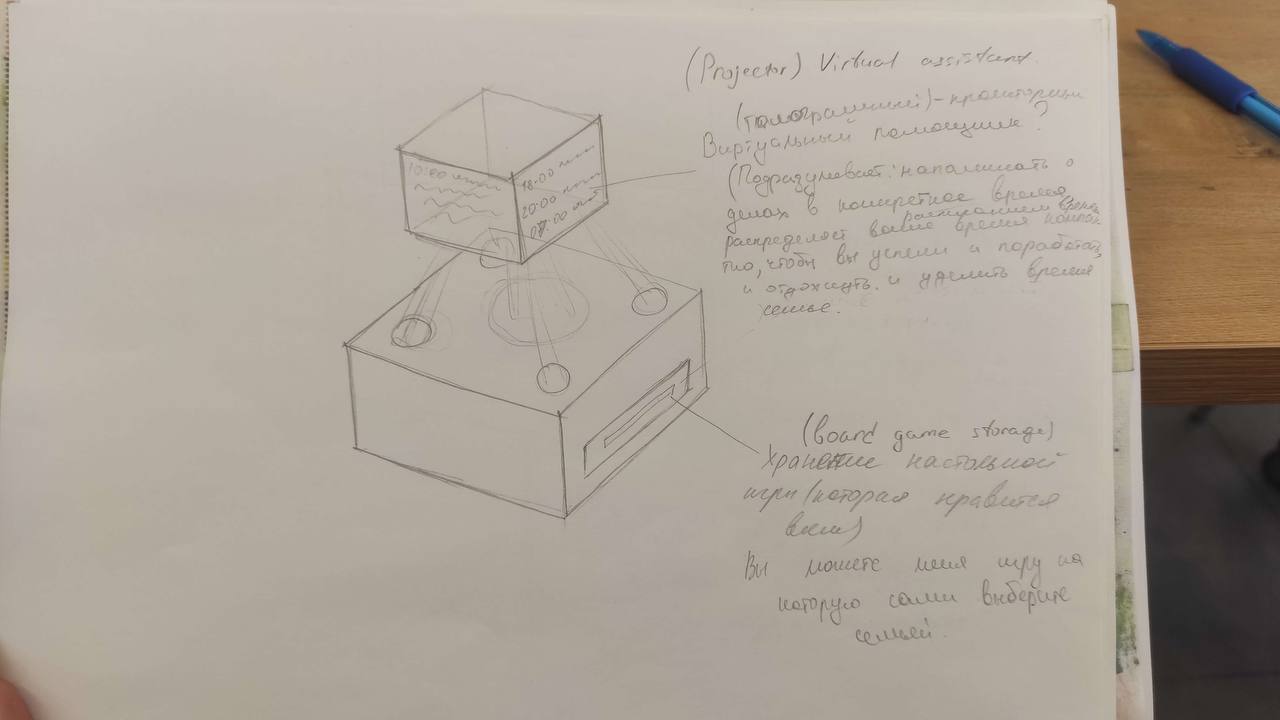 (Projector) Virtual assistant.
(голограммный) - проэкторный
Виртуальный помощник?
(Подразумевает: напоминать о
делах в конкретное время,
распределяет ваше время
чтобы вы успели и поработать,
и отдохнуть. и уделить время
семье.
10:00
18:00
20:00
(board game storage)
Хранение настольной
игры (которая нравится
всем)
Вы можете игру на
которую сами выберите
семьёй.